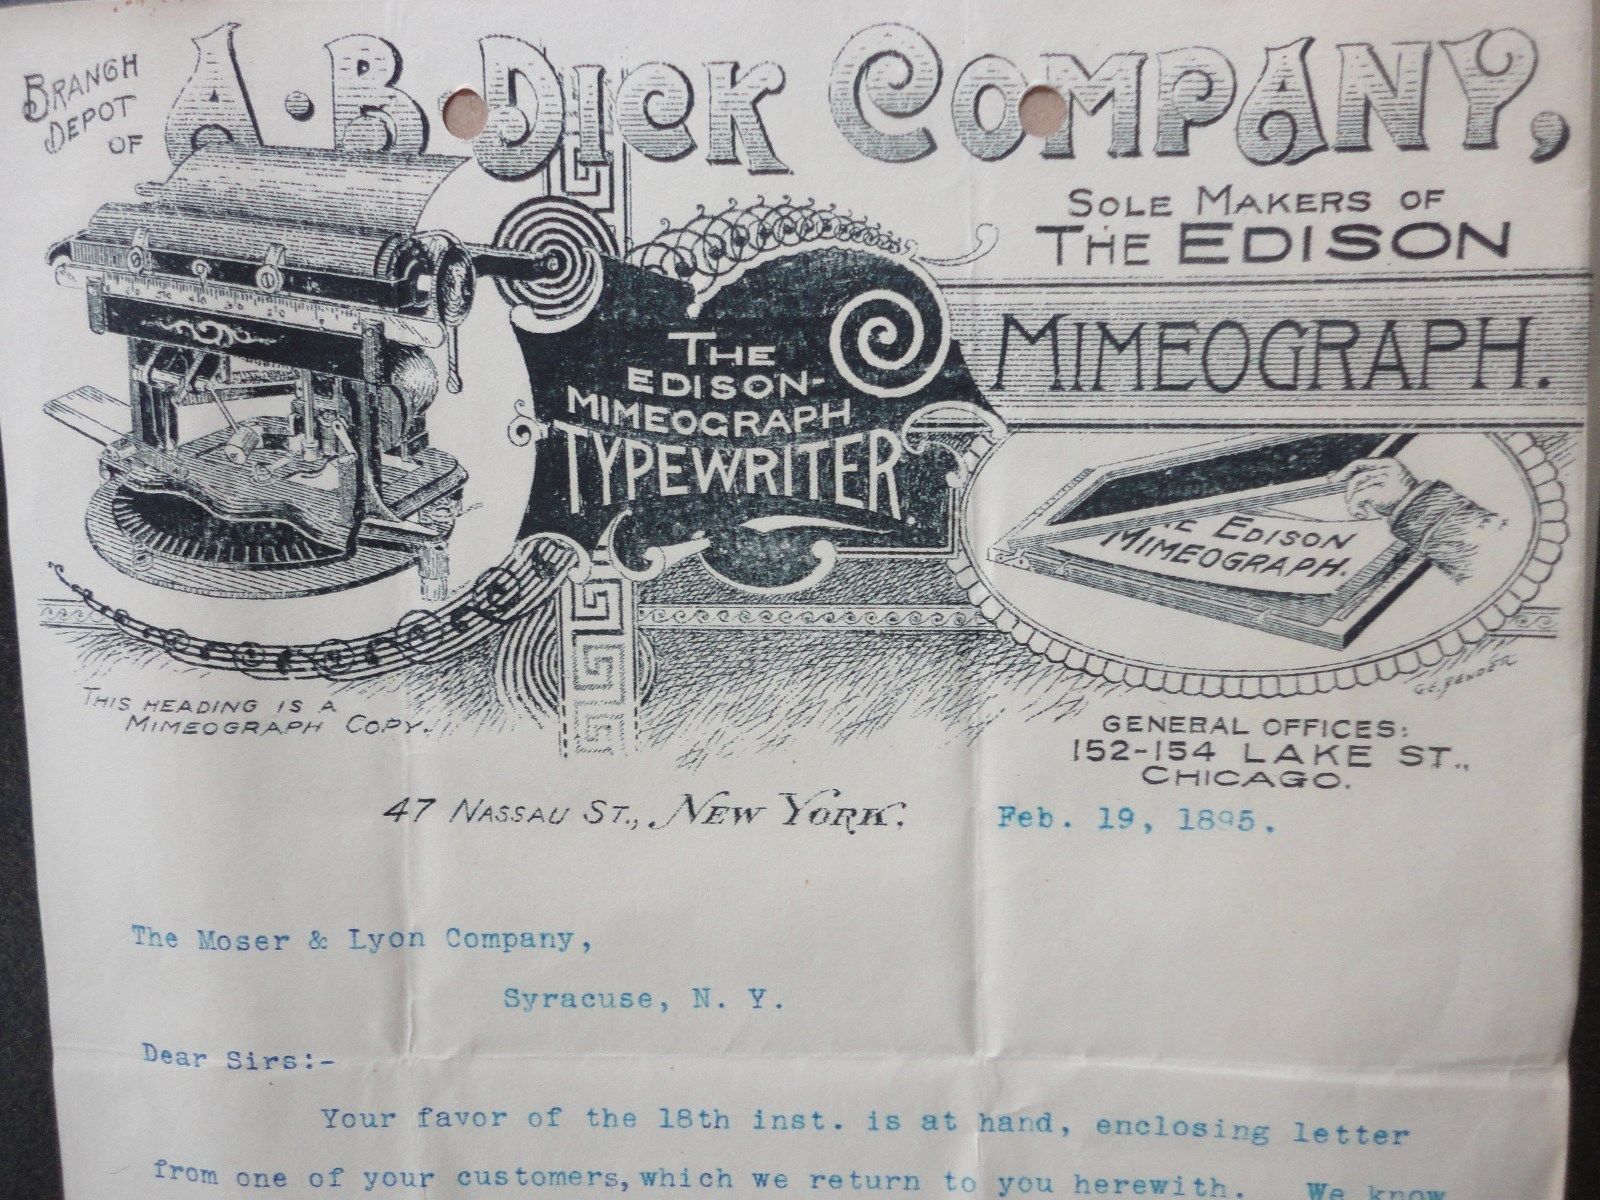 BRANCH
DEPOT
OF
A.B. DICK COMPANY,
SOLE MAKERS OF
THE EDISON
MIMEOGRAPH.
THE
EDISON-
MIMEOGRAPH
TYPEWRITER.
THE EDISON
MIMEOGRAPH.
G.C. BENDER
THIS HEADING IS A
MIMEOGRAPH COPY.
GENERAL OFFICES:
152-154 LAKE ST.,
CHICAGO.
47 NASSAU ST., NEW YORK.
Feb. 19, 1895.
The Moser & Lyon Company,
Syracuse, N. Y.
Dear Sirs:-
Your favor of the 18th inst. is at hand, enclosing letter
from one of your customers, which we return to you herewith. We know